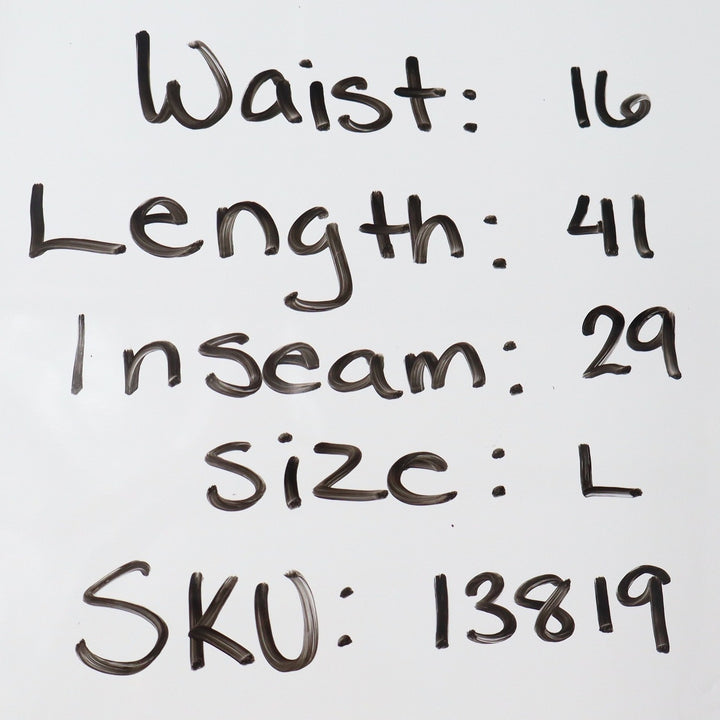 Waist: 16
Length: 41
Inseam: 29
Size: L
SKU: 13819